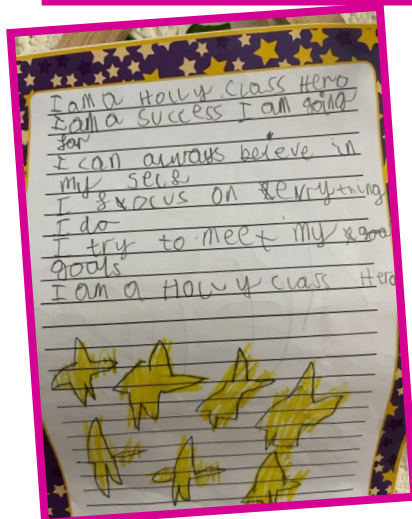 I am a Holly Class Hero
I am a Success I am going
far
I can always beleve in
my self
I focus on everything
I do
I try to meet my goo
goals
I am a Holly Class Hero